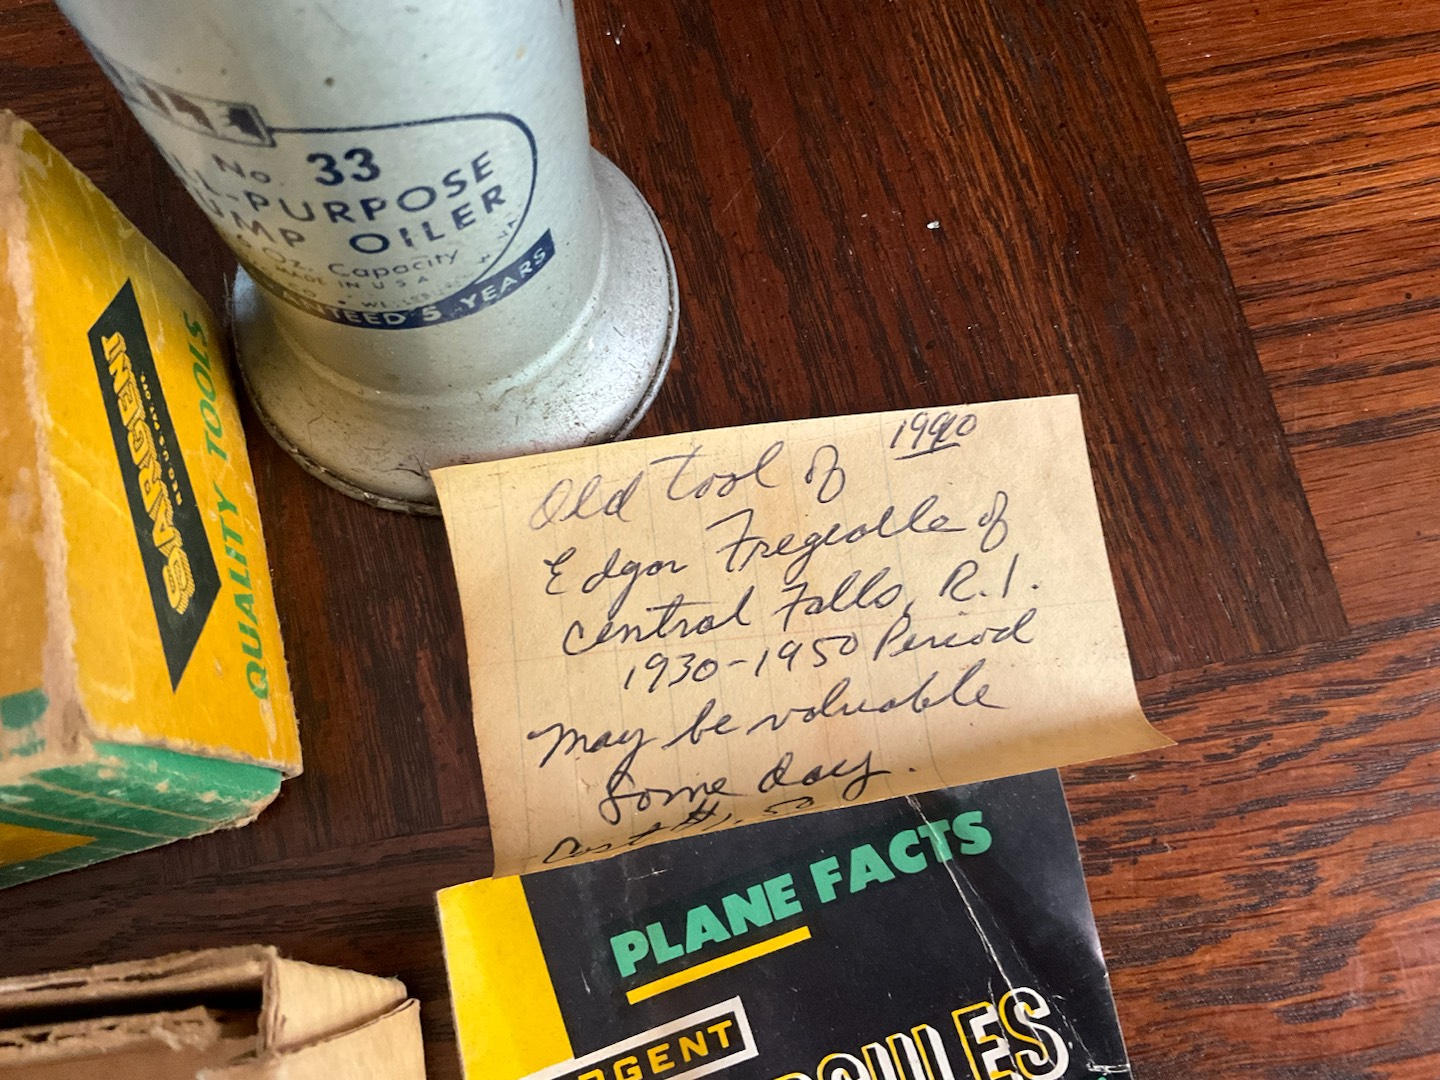 No 33
-PURPOSE
OILER
OZ. Capacity
MADE IN U S A
5 YEARS
SARGENT
REG. U.S. PAT. OFF.
QUALITY TOOLS
1990
Old tool of
Edgar Fregeolle of
Central Falls, R.I.
1930-1950 Period
May be valuable
Some day.
PLANE FACTS